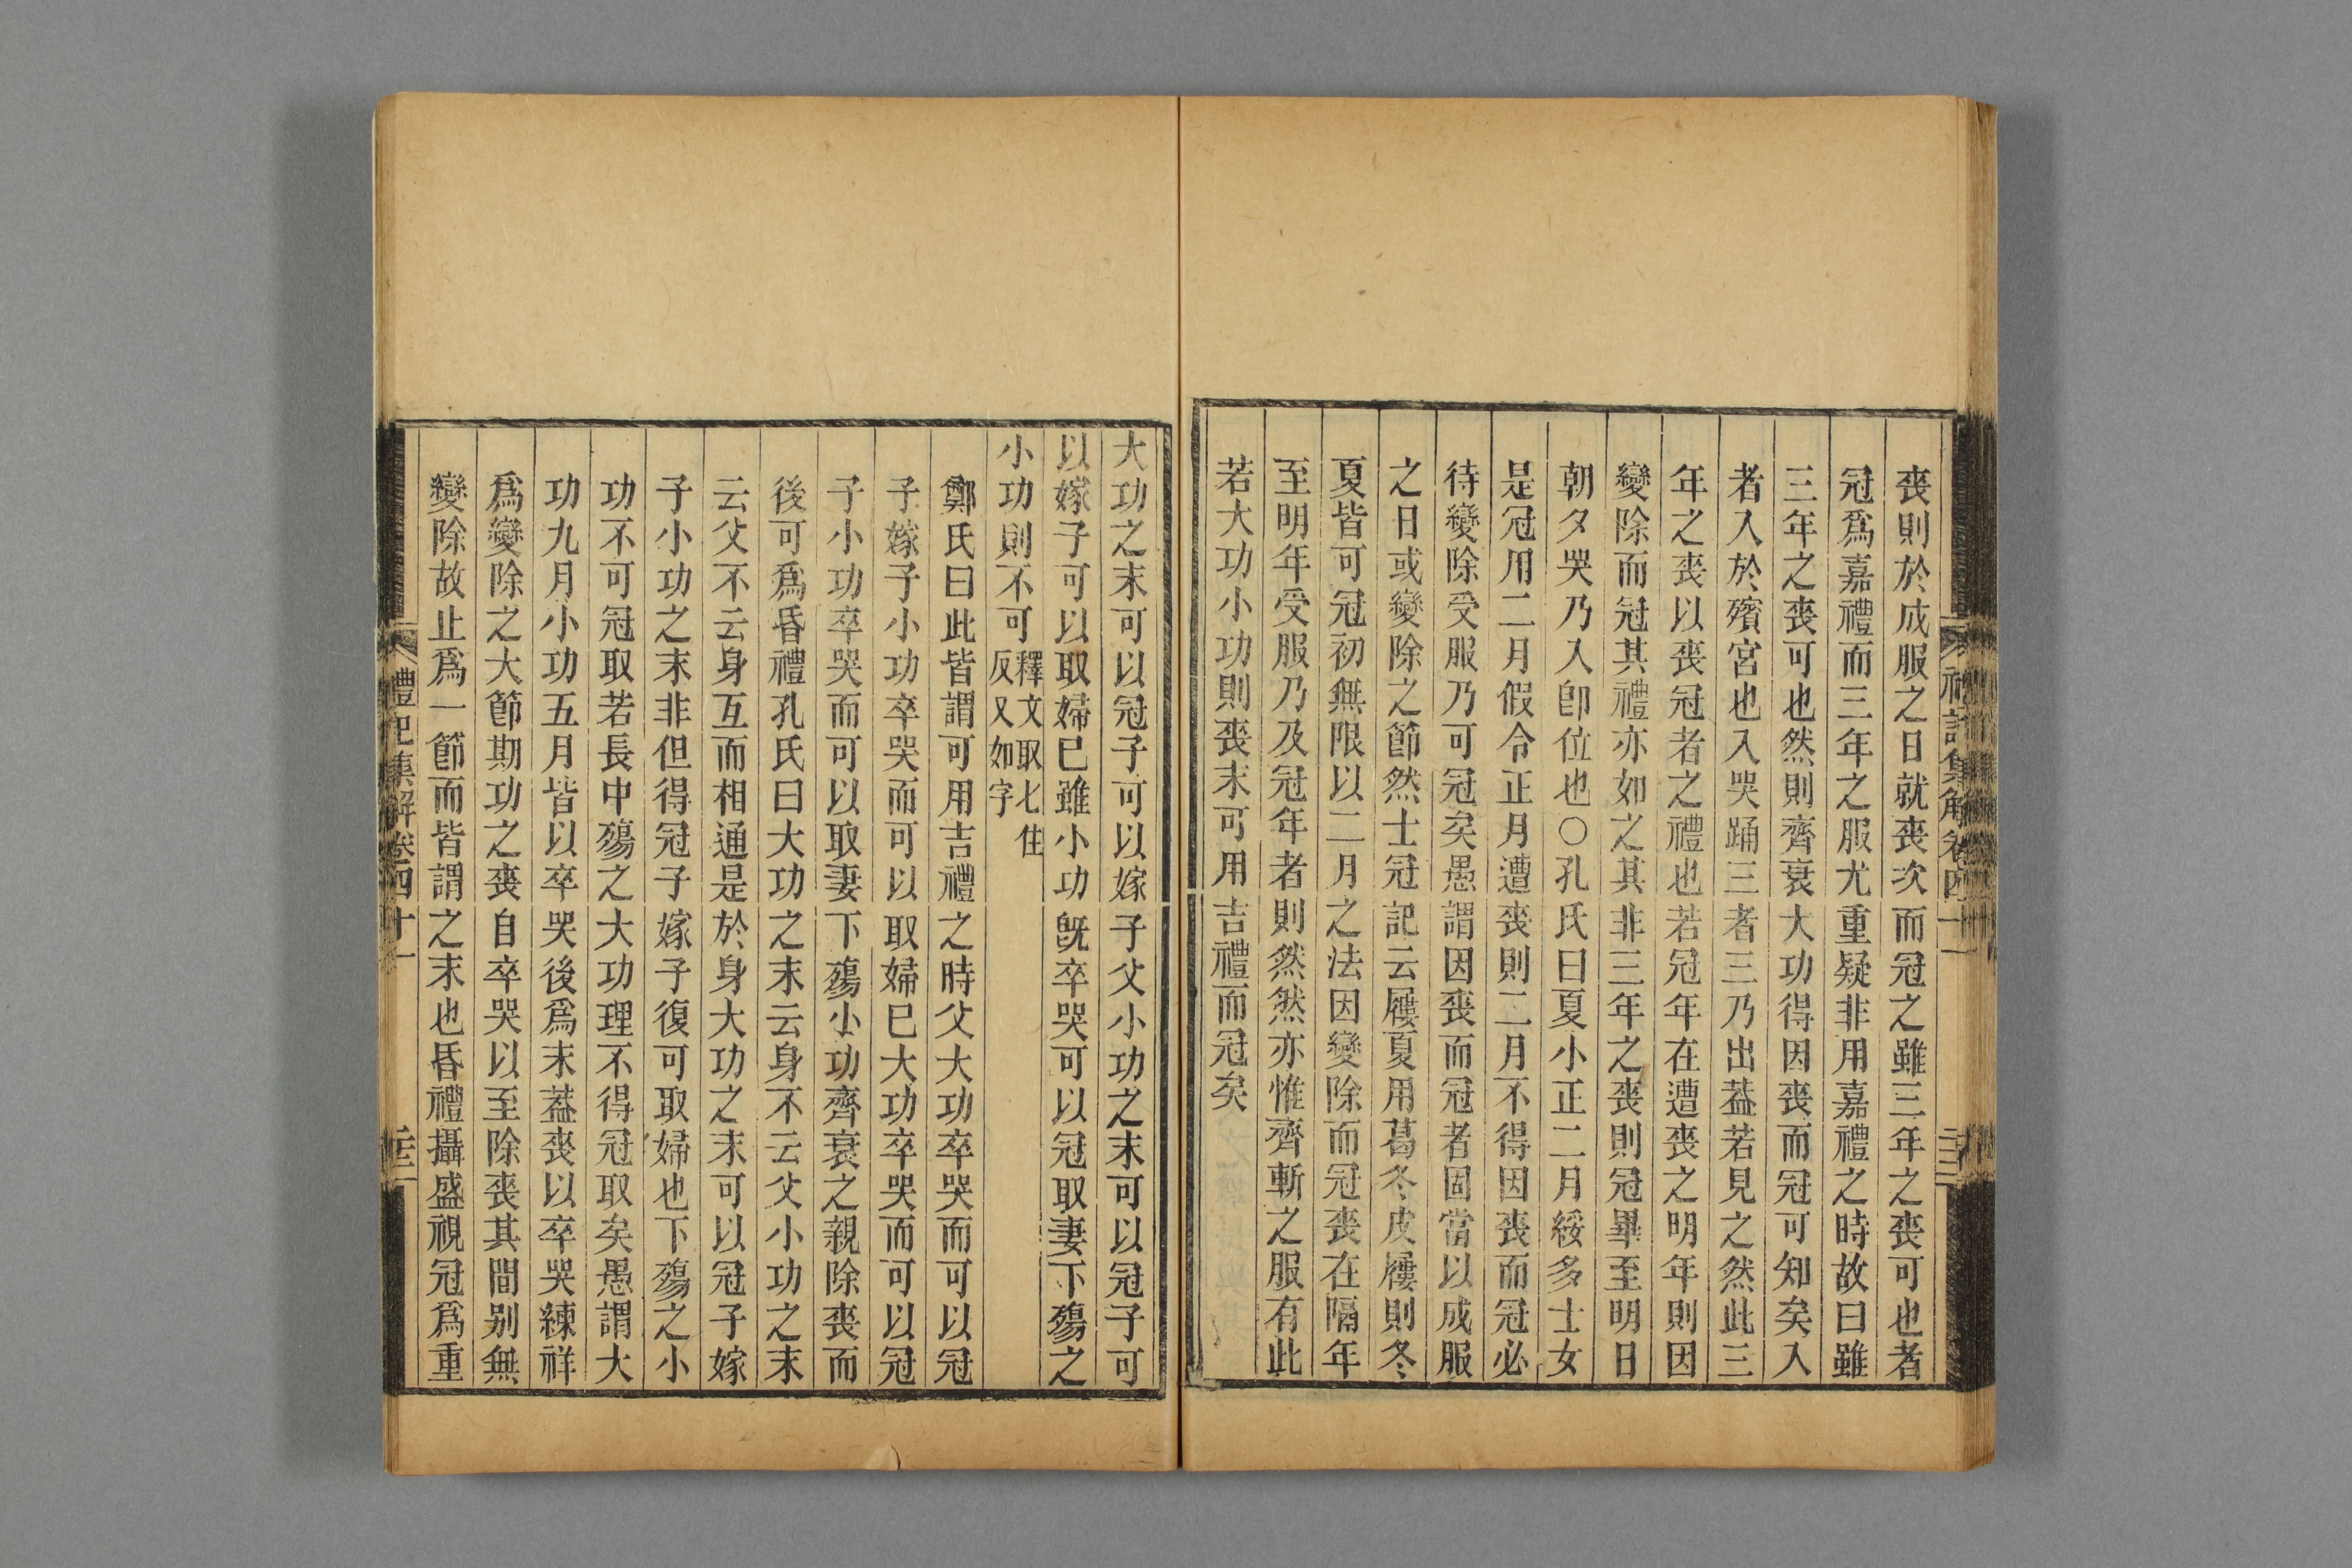 喪則於成服之日就喪次而冠之雖三年之喪可也者
冠爲嘉禮而三年之服尤重疑非用嘉禮之時故曰雖
三年之喪可也然則齊衰大功得因喪而冠可知矣入
者入於殯宮也入哭踊三者三乃出葢若見之然此三
年之喪以喪冠者之禮也若冠年在遭喪之明年則因
變除而冠其禮亦如之其非三年之喪則冠畢至明日
朝夕哭乃入卽位也○孔氏曰夏小正二月綏多士女
是冠用二月假令正月遭喪則二月不得因喪而冠必
待變除受服乃可冠矣愚謂因喪而冠者固當以成服
之日或變除之節然士冠記云屨夏用葛冬皮屨則冬
夏皆可冠初無限以二月之法因變除而冠喪在隔年
至明年受服乃及冠年者則然然亦惟齊斬之服有此
若大功小功則喪末可用吉禮而冠矣
大功之末可以冠子可以嫁子父小功之末可以冠子可
以嫁子可以取婦已雖小功旣卒哭可以冠取妻下殤之
小功則不可釋文取七住反又如字
鄭氏曰此皆謂可用吉禮之時父大功卒哭而可以冠
子嫁子小功卒哭而可以取婦已大功卒哭而可以冠
子小功卒哭而可以取妻下殤小功齊衰之親除喪而
後可爲昏禮孔氏曰大功之末云身不云父小功之末
云父不云身互而相通是於身大功之末可以冠子嫁
子小功之末非但得冠子嫁子復可取婦也下殤之小
功不可冠取若長中殤之大功理不得冠取矣愚謂大
功九月小功五月皆以卒哭後爲末葢喪以卒哭練祥
爲變除之大節期功之喪自卒哭以至除喪其間別無
變除故止爲一節而皆謂之末也昏禮攝盛視冠爲重
禮記集解卷四十一